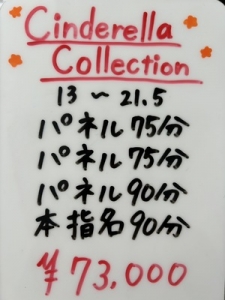 Cinderella
Collection
13〜21.5
パネル75分
パネル75分
パネル90分
本指名90分
¥73,000